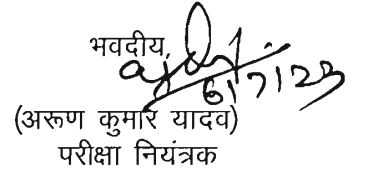 भवदीय,
6/7/23
(अरूण कुमार यादव)
परीक्षा नियंत्रक